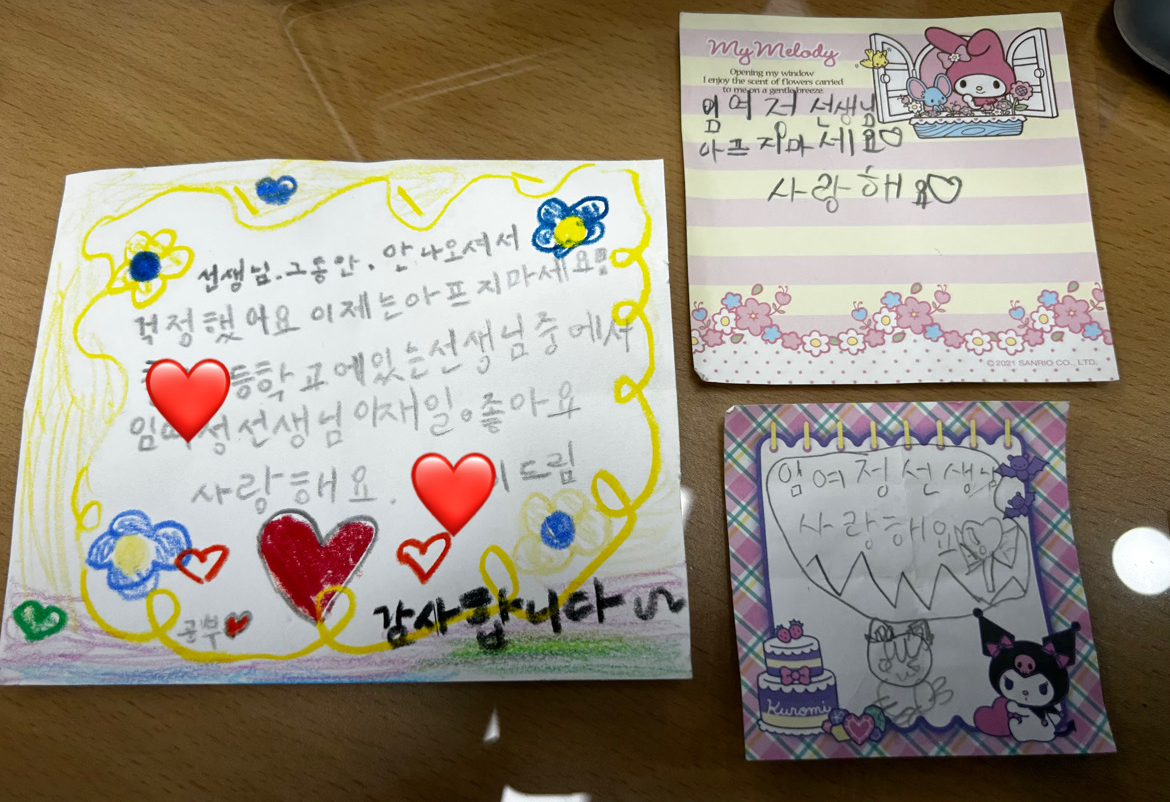 선생님. 그동안. 안 나오셔서
걱정했어요 이제는 아프지마세요!
등학교에있는선생님중에서
임여정선생님이재일좋아요
사랑해요. 이드림
공부
감사합니다
My Melody
Opening my window
I enjoy the scent of flowers carried
to me on a gentle breeze
임여저 선생님
아프지마세요♡
사랑해요♡
© 2021 SANRIO CO., LTD.
임여정선생님
사랑해요
Kuromi